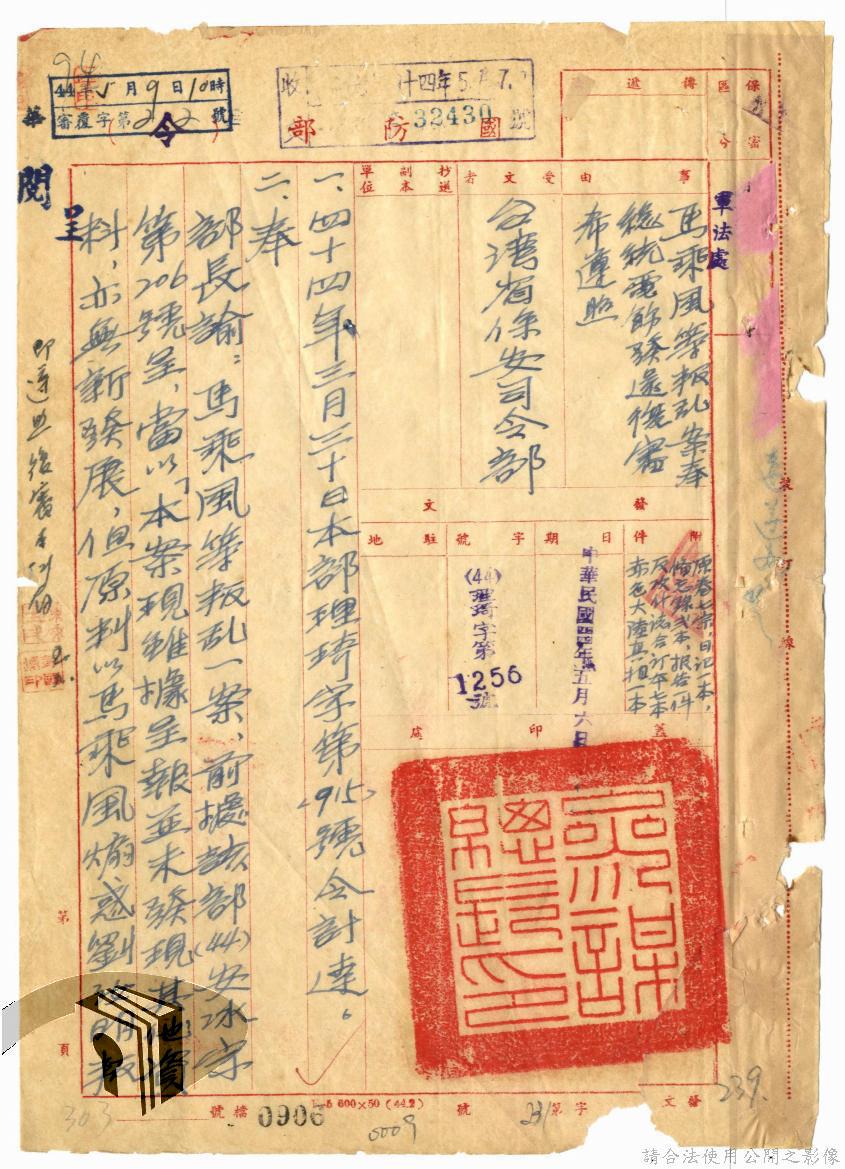 保密區分
傳遞
軍法處
事由
馬乘風等叛乱案奉
總統電飭發還復審
希遵照
受文者
台灣省保安司令部
抄送副本單位
發文
附件
原卷七宗，日記一本，
備忘錄弍本，報告一件
反攻什誌合訂本七本
赤色大陸真相一本
日期
中華民國四四年五月六日
字號
(44)理琦字第
1256
號
駐地
蓋印處
參謀總長印
一、四十四年三月三十日本部理琦字第(915)號令計達。
二、奉
部長諭：馬乘風等叛乱一案，前據該部(44)安冰字
第206號呈，當以「本案現雖據呈報並未發現其他資
料，亦無新發展，但原判以馬乘風煽惑劉
44年5月9日10時
審覆字第212號
令
收
十四年5月7
國防部
32430
號
呈
閱
裝訂線
第頁
檔號
0906
5 600×50 (44.2)
231
發文字第號
239.
303
0009
請合法使用公開之影像